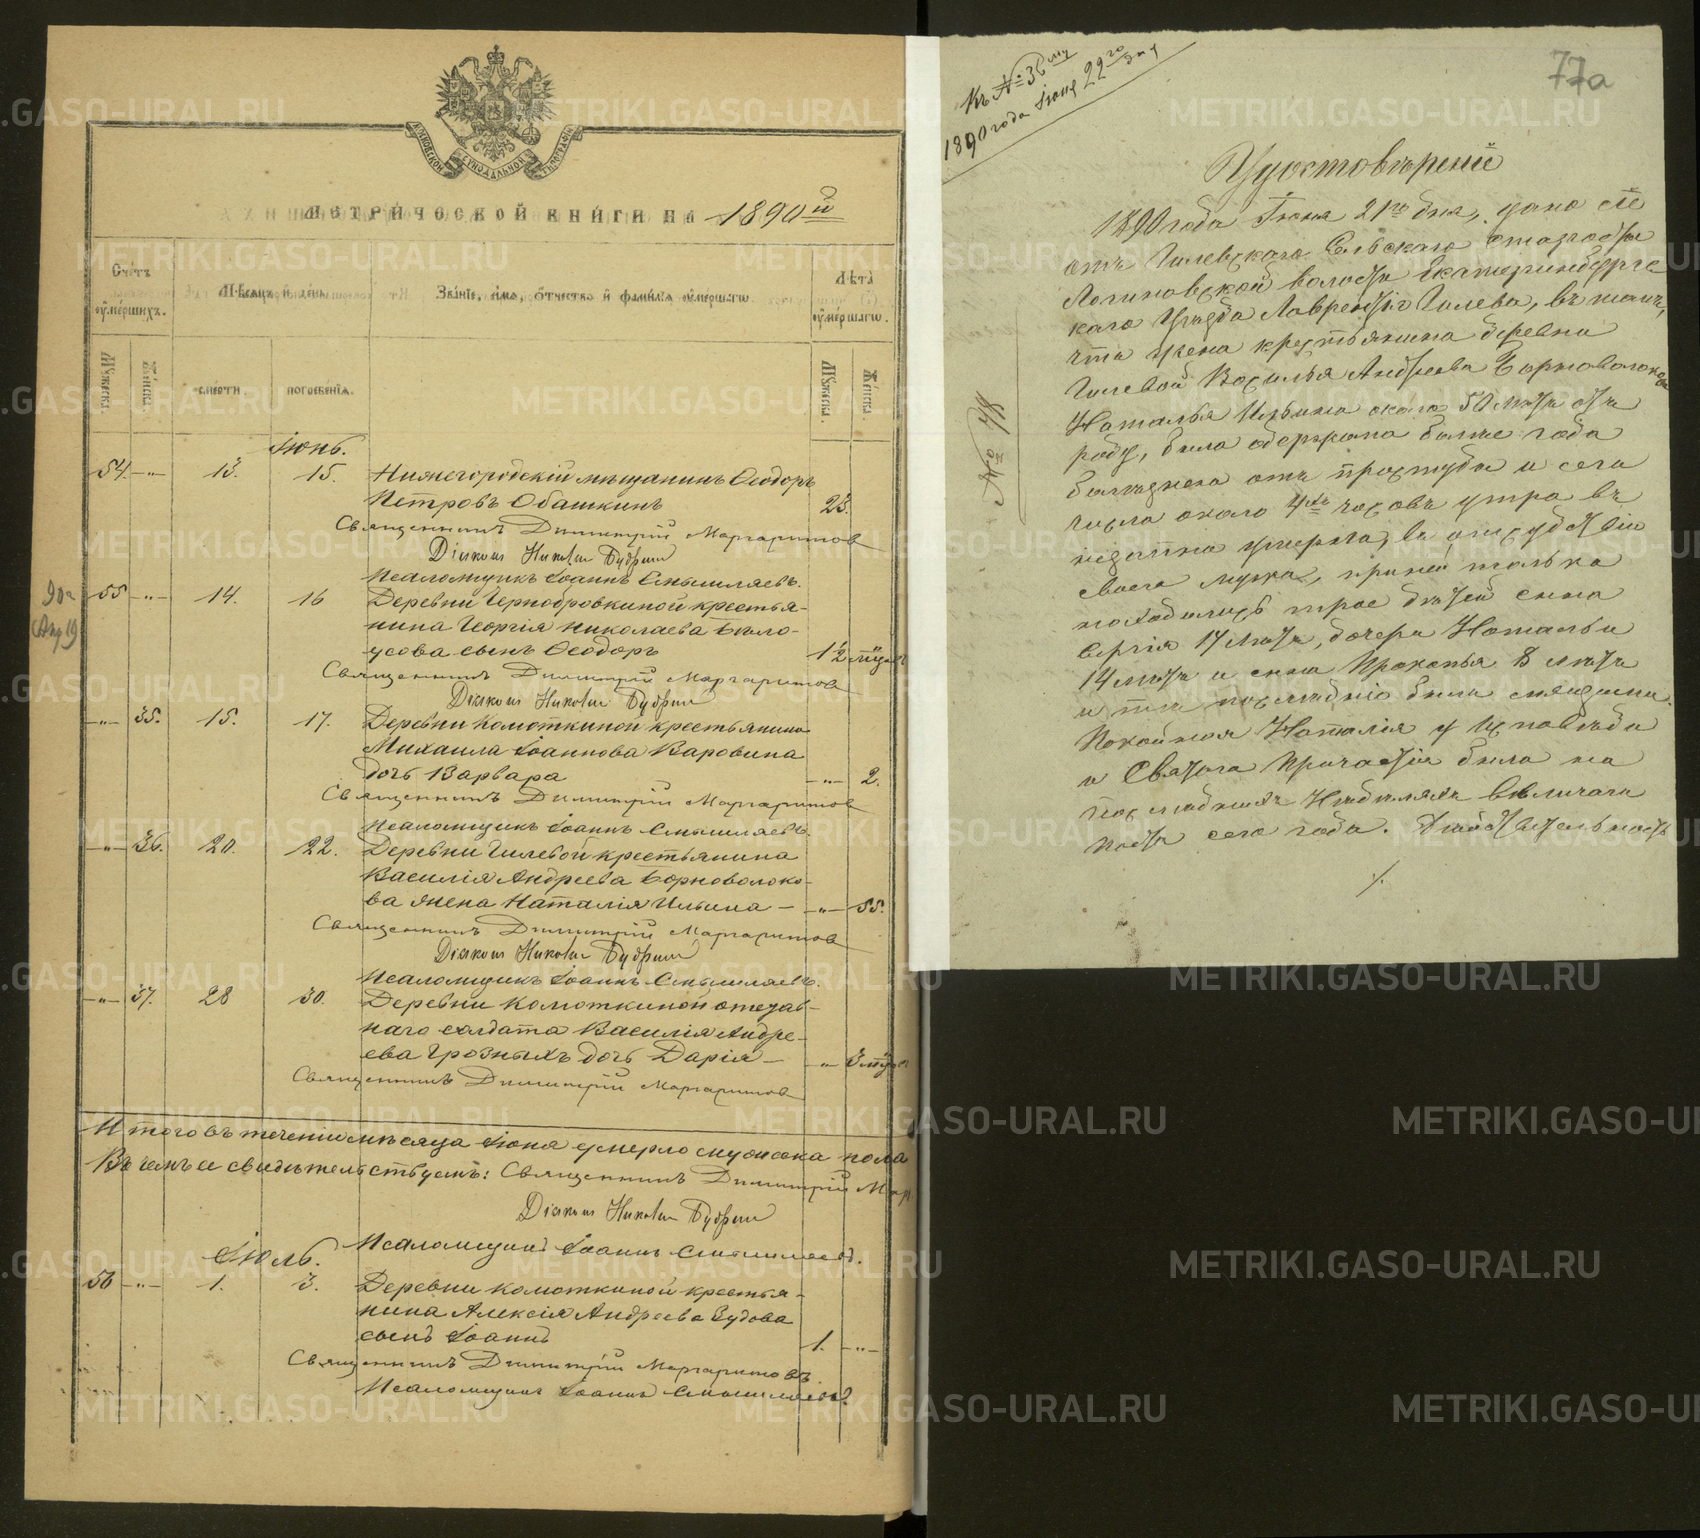 МЕТРИ́ЧЕСКОЙ КНИ́ГИ НА 1890й
Счётъ ᲂу҆ме́ршихъ.
Мѣ́сяцъ и҆ де́нь.
Зва́нїе, и҆́мя, ѻ҆́тчество и҆ фами́лїя ᲂу҆ме́ршагѡ.
Лѣта̀ ᲂу҆ме́ршагѡ.
Мꙋ́жеска.
Же́нска.
сме́рти.
погребе́нїѧ.
Мꙋ́жеска.
Же́нска.
Іюнь.
54 -"- 13. 15. Нижегородскій мѣщанинъ Ѳеодоръ
Петровъ Обашкинъ 23.
Священникъ Димитрій Маргаритовъ
Діаконъ Николай Будринъ
Псаломщикъ Іоаннъ Смышляевъ.
55 -"- 14. 16 Деревни Чернобровкиной крестья-
нина Георгія Николаева Бѣло-
усова сынъ Ѳеодоръ 1½ мѣсяц
Священникъ Димитрій Маргаритовъ
Діаконъ Николай Будринъ
-"- 35. 15. 17. Деревни Комоткиной крестьянина
Михаила Іоаннова Варовина
дочь Варвара -"- 2.
Священникъ Димитрій Маргаритовъ
Псаломщикъ Іоаннъ Смышляевъ.
-"- 36. 20. 22. Деревни Гилевой крестьянина
Василія Андреева Борноволоко-
ва жена Наталія Ильина — -"- 55.
Священникъ Димитрій Маргаритовъ
Діаконъ Николай Будринъ
Псаломщикъ Іоаннъ Смышляевъ.
-"- 37. 28 30. Деревни Комоткиной отстав-
наго солдата Василія Андре-
ева Грозныхъ дочь Дарія — " 3 мѣс
Священникъ Димитрій Маргаритовъ
Итого въ теченіи мѣсяца Іюня умерло мужска пола
Въ чемъ и свидѣтельствуемъ: Священникъ Димитрій Мар
Діаконъ Николай Будринъ
Псаломщикъ Іоаннъ Смышляевъ.
Іюль.
56 -"- 1. 3. Деревни Комоткиной крестья-
нина Алексія Андреева Зудова
сынъ Іоаннъ 1. -"-
Священникъ Димитрій Маргаритовъ.
Псаломщикъ Іоаннъ Смышляевъ.
77а
Къ № 36му
1890 года Іюня 22го дня
№ 78
Удостовѣреніе
1890 года Іюня 21го дня, дано сіе
отъ Гилевскаго Сельскаго старосты
Логиновской волости Екатеринбургс
каго Уѣзда Лаврентія Гилева, въ томъ,
что жена крестьянина деревни
Гилевой Василья Андреева Борноволокова
Наталья Ильина около 50 лѣтъ отъ
роду, была одержима болѣе года
болѣзнею отъ простуды и сего
числа около 4хъ часовъ утра въ
незапна умерла, въ отсудствіи
своего мужа, при ней только
находились трое дѣтей сына
Сергія 17 лѣтъ, дочери Натальи
14 лѣтъ и сына Прокопья 8 лѣтъ
и тѣ послѣдніе были спящими.
Покойная Наталія у Исповѣди
и Святаго Причастія была на
послѣднихъ Недѣляхъ Великаго
поста сего года.